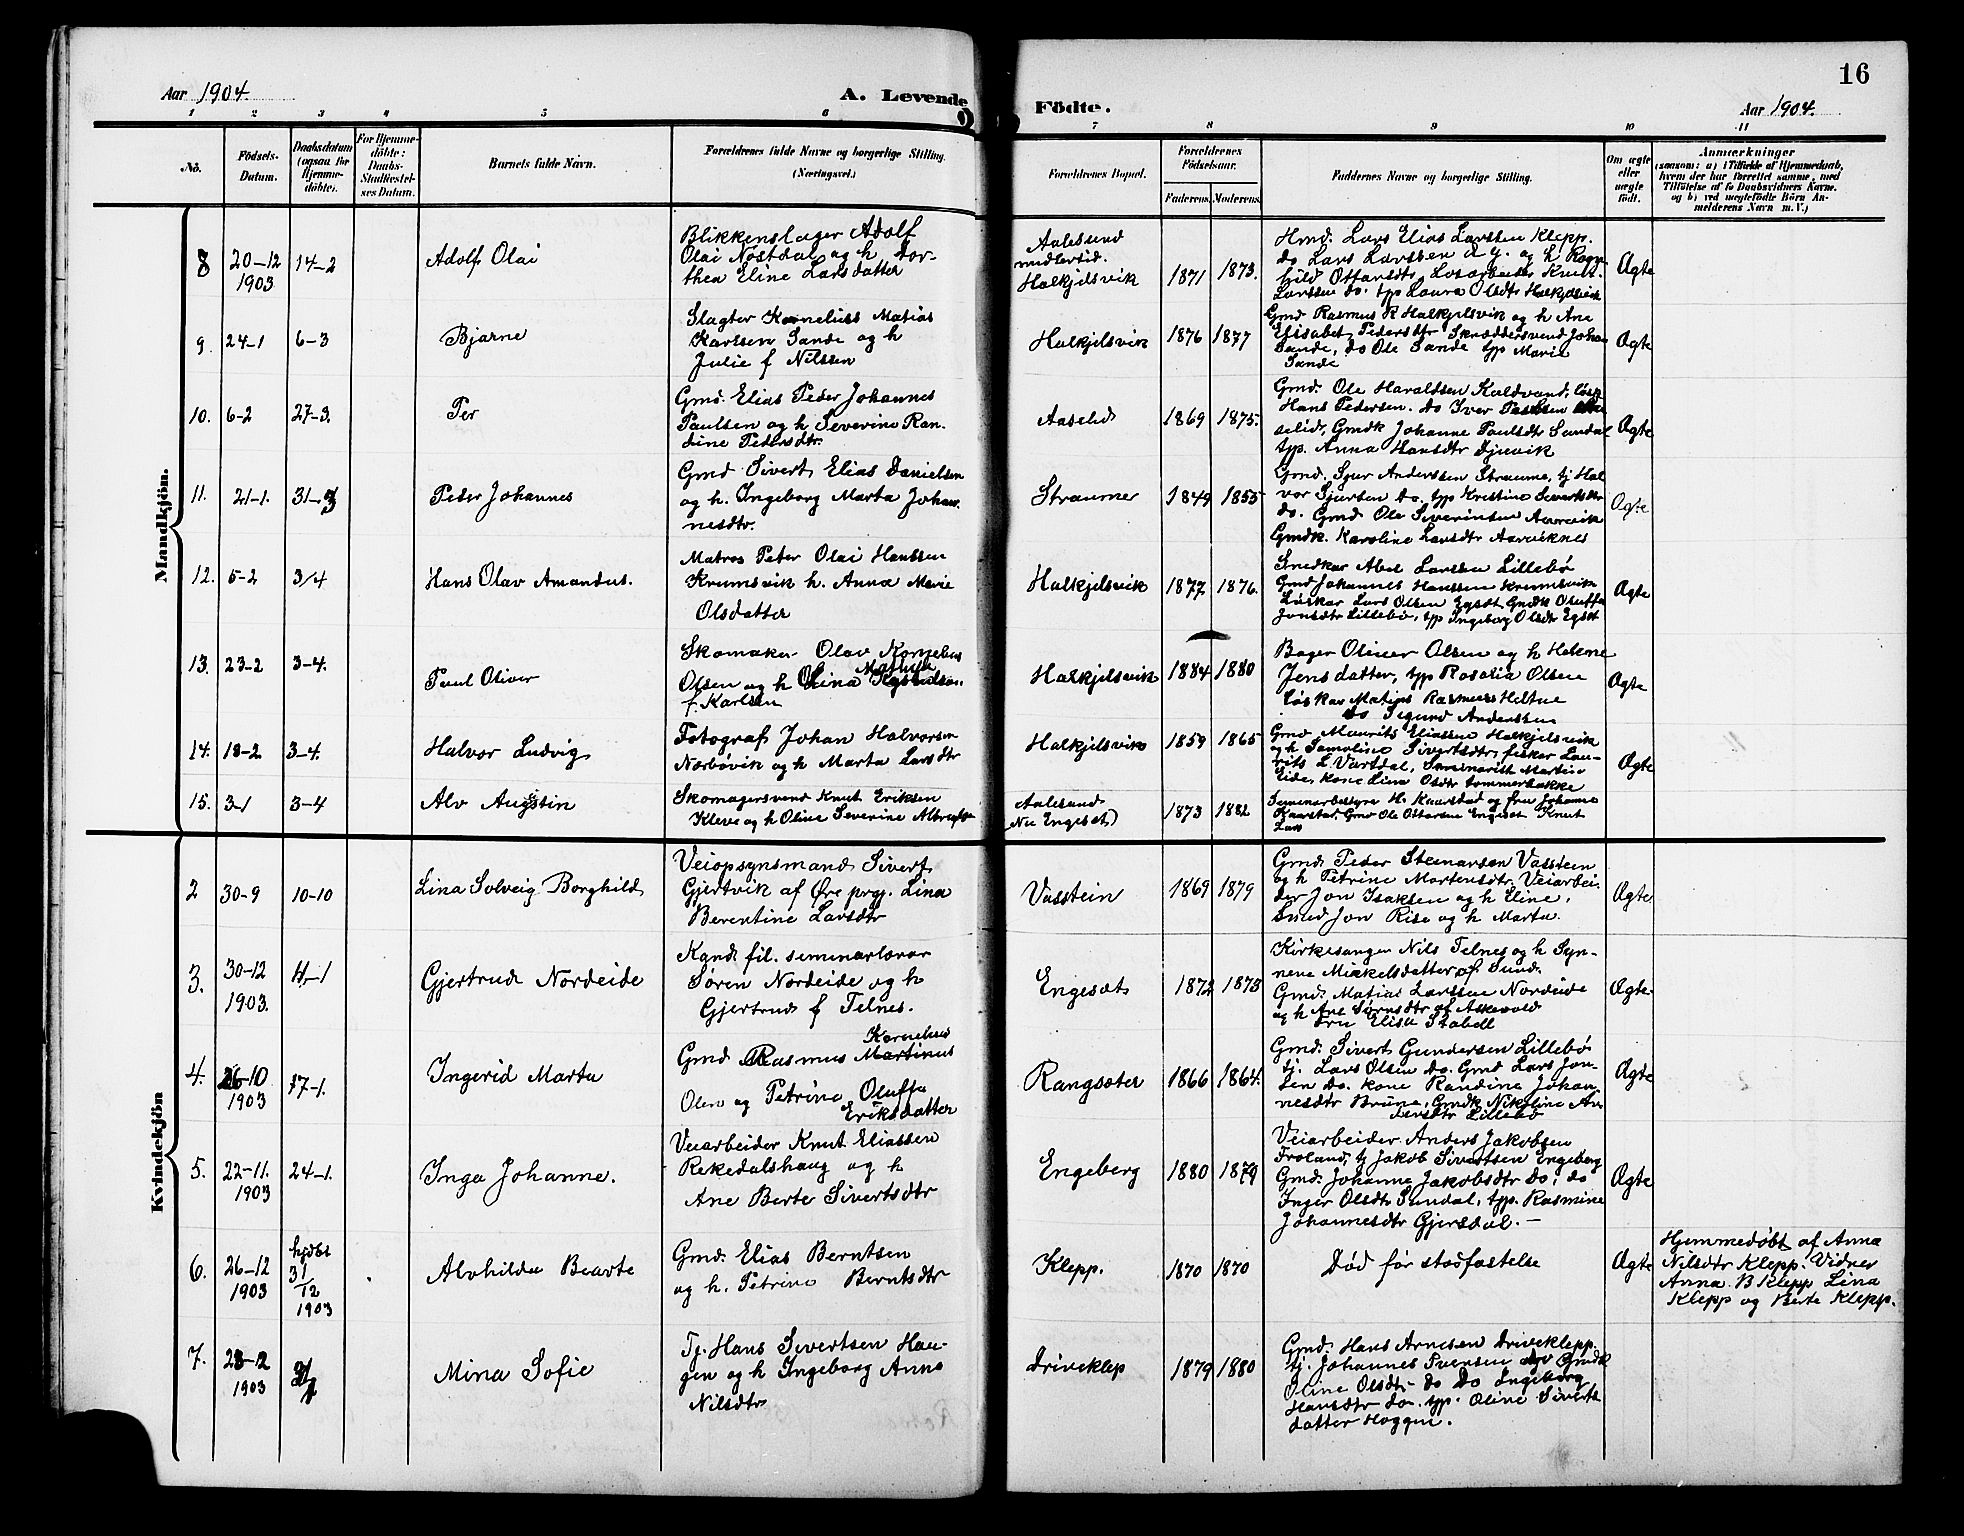 16
Aar 1904.
A. Levende Födte.
Aar 1904.
1 2 3 4 5 6 7 8 9 10 11
No.
Födsels-Datum.
Daabsdatum (ogsaa for Hjemmedöbte).
For Hjemmedöbte: Daabs-Stadfæstelses Datum.
Barnets fulde Navn.
Forældrenes fulde Navne og borgerlige Stilling. (Næringsvei.)
Forældrenes Bopæl.
Forældrenes Födselsaar.
Faderens. Moderens.
Faddernes Navne og borgerlige Stilling.
Om ægte eller uægte født.
Anmærkninger
(saasom: a) i Tilfælde af Hjemmedaab,
hvem der har forrettet samme, med
Tilföielse af to Daabsvidners Navne.
og b) ved uægtefödte Börn An-
melderens Navn m. V.)
Mandkjön.
8 20-12 1903 14-2
Adolf Olai
Blikkenslager Adolf
Olai Nøstdal og h Dor-
thea Eline Larsdatter
Aalesund
midlertid.
Halkjelsvik
1871 1873.
Hmd. Lars Elias Larssen Klepp.
do Lars Larssen d. y. og h Ragn-
hild Ottarsdtr Løsarbeider Knut
Larssen do. tpp Laura Olsdtr Halkjelsvik
Ægte
9. 24-1 6-3
Bjarne
Slagter Kornelius Matias
Karlsen Sande og h
Julie f Nilssen
Halkjelsvik
1876 1877
Gmd Rasmus R Halkjelsvik og h Ane
Elisabet Pedersdtr Skræddersvend Johan
Sande, do Ole Sande tpp Marie
Sande
Ægte
10. 6-2 27-3.
Per
Gmd. Elias Peder Johannes
Paulsen og h Severine Ran-
dine Pedersdtr.
Aaselid
1869 1875.
Gmd. Ole Haraldsen Kaldvand, løsk
Hans Pedersen. do Iver Paulsen Aa-
selid, Gmdk Johanne Paulsdtr Sundal
tpp. Anna Hansdtr Djuvik
Ægte
11. 21-1. 31-3
Peder Johannes
Gmd Sivert Elias Danielsen
og h. Ingeborg Marta Johan-
nesdtr.
Straumer
1849 1855
Gmd. Sjur Anderssen Straume, tj Hal
vor Sjursen do. tpp Kristine Sivertsdtr
do. Gmd Ole Siverinsen Aarvik
Gmdk. Karoline Larsdtr Aarviknes
Ægte
12. 5-2 3/4
Hans Olav Amandus.
Matros Peter Olai Hanssen
Krumsvik h. Anna Marie
Olsdatter
Halkjelsvik
1877 1876.
Snedkar Abel Larssen Lillebø
Gmd Johannes Hanssen Krumsvik
Løskar Lars Olsen Egset Gmdk Oluffa
Jonsdtr Lillebø, tpp Ingeborg Olsdtr Egset
Ægte
13. 23-2 3-4.
Paul Oliver
Skomaker Olav Kornelius
Olsen og h Olina Matilde
f. Karlsen
Halkjelsvik
1884 1880
Bager Oliner Olsen og h Helene
Jensdatter, tpp Rosalia Olsen
Løskar Matias Rasmus Heltne
do Sigurd Anderssen
Ægte
14. 18-2 3-4.
Halvor Ludvig
Fotograf Johan Halvorsen
Nærbøvik og h Marta Larsdtr
Halkjelsvik
1859 1865
Gmd Maurits Eliassen Halkjelsvik
og h Samoline Sivertsdtr, fiskar Lau-
rits L Vartdal, Seminarist Martin
Eide, kone Lina Olsdtr Tommerbakke
Ægte
15. 3-1 3-4
Alv Augustin
Skomagersvend Knut Eriksen
Kleve og h Oline Severine
Aalesund
(Nu Engeset)
1873 1882
Seminarbestyre H. Kaarstad og fru Johanne
Kaarstad, Gmd Ole Ottarsen Engeset Knut
Ægte
Kvindekjön
2 30-9 10-10
Lina Solveig Borghild
Veiopsynsmand Sivert
Gjertvik af Øre prgj. Lina
Berentine Larsdtr
Vasstein
1869 1879
Gmd. Peder Steinarsen Vasstein
og h Petrine Martensdtr. Veiarbei-
der Jon Isaksen og h Eline,
Smed Jon Rise og h Marta.
Ægte
3. 30-12 1903. 11-1
Gjertrud Nordeide
Kand. fil. seminarlærar
Søren Nordeide og h
Gjertrud f Telnes.
Engeset
1872 1873
Kirkesanger Nils Telnes og h Syn-
neve Mikkelsdatter af Sund.
Gmd. Matias Larssen Nordeide
og h Ane Sørnsdtr af Askevold
Fru Elise Stabell
Ægte
4. 26-10 1903 17-1.
Ingerid Marta
Gmd Rasmus Kornelius Martinus
Olsen og Petrine Oluffa
Eriksdatter
Rangsæter
1866 1864.
Gmd. Sivert Gundersen Lillebø
tj. Lars Olsen do. Gmd Lars Jon-
sen do. kone Randine Johan-
nesdtr Brune, Gmdk Nikoline An-
dersdtr Lillebø
Ægte
5. 22-11. 1903 24-1.
Inga Johanne.
Veiarbeider Knut Eliassen
Rekedalshaug og h
Ane Berte Sivertsdtr
Engeberg
1880 1879
Veiarbeider Anders Jakobsen
Froland, tj Jakob Sivertsen Engeberg
Gmd. Johanne Jakobsdtr do, do
Inger Olsdtr Sundal, tpp. Rasmine
Johannesdtr Gjersdal. —
Ægte
6. 26-12 1903 hjdbt 31/12 1903
Alvhilda Bearte
Gmd. Elias Berntsen
og h. Petrine Berntsdtr
Klepp.
1870 1870
Død før stadfæstelse
Ægte
Hjemmedøbt af Anna
Nilsdtr Klepp. Vidner
Anna B Klepp Lina
Klepp og Berte Klepp.
7. 28-12 1903
Mina Sofie
Tj. Hans Sivertsen Hau-
gen og h Ingeborg Anna
Nilsdtr
Driveklep
1879 1880
Gmd. Hans Arnesen Driveklepp.
tj. Johannes Iversen do Gmdk
Oline Olsdtr do Do Ingeborg
Hansdtr do. tpp. Oline Siverts
datter Haggen.